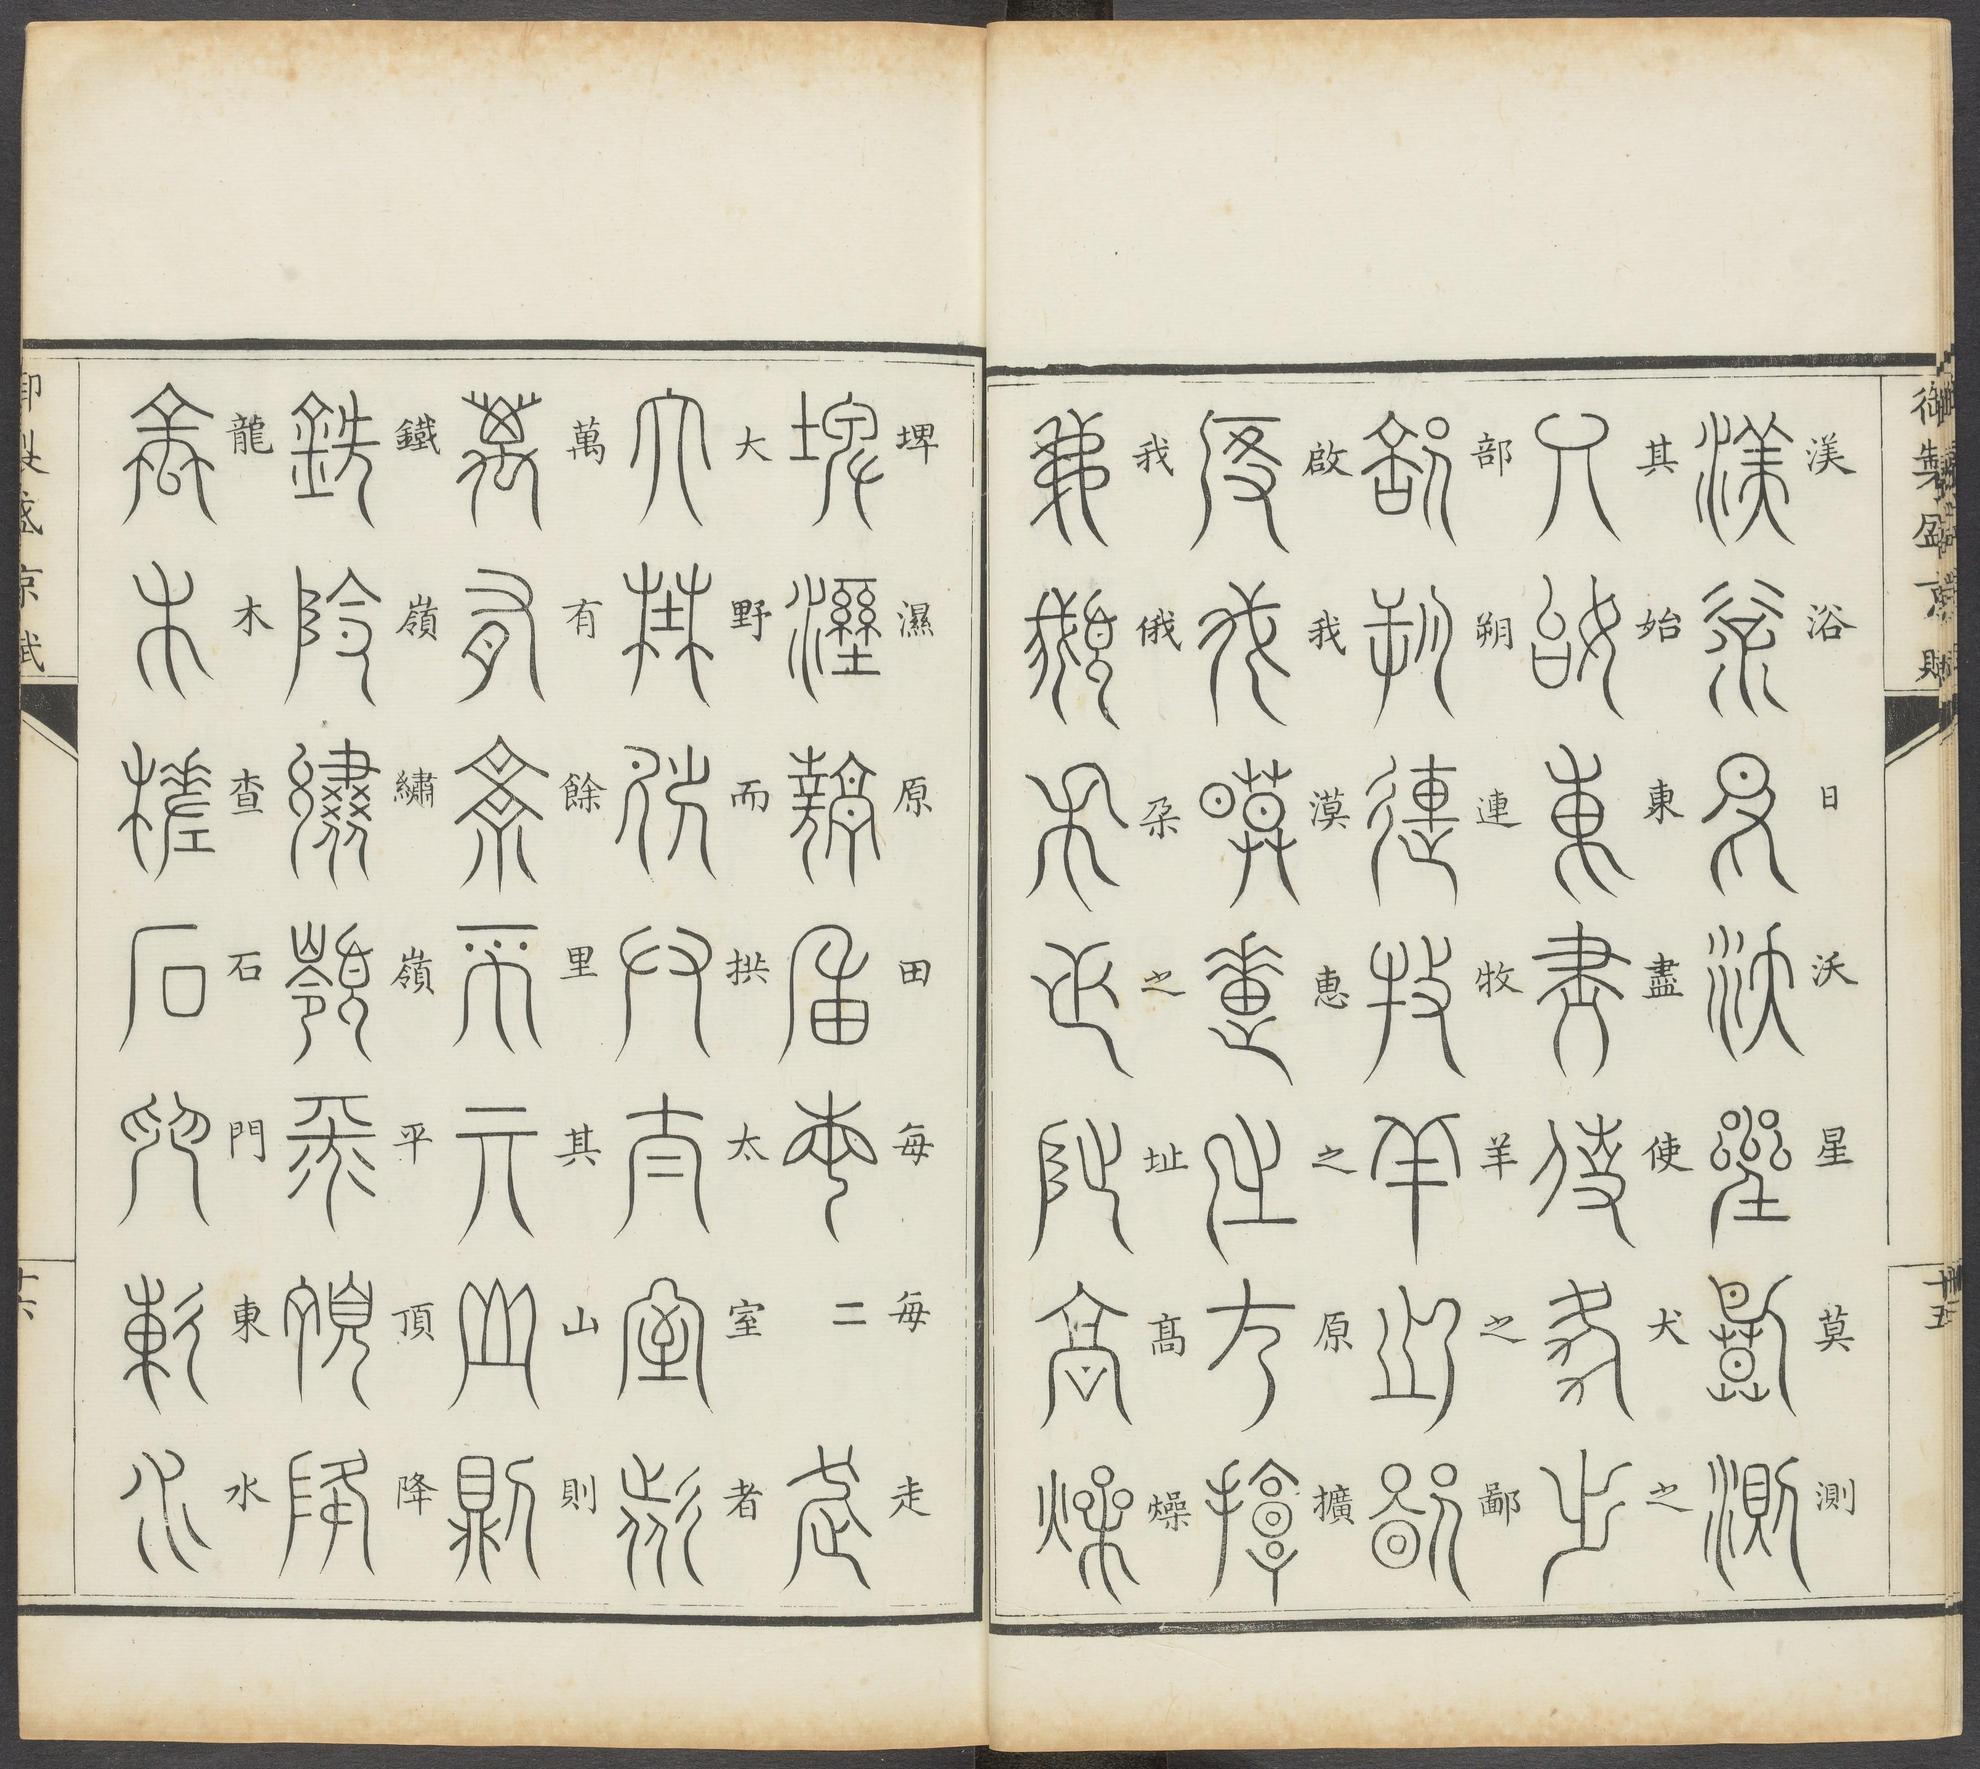 御製盛京賦
渼浴日沃星莫測
其始東盡使犬之
部朔連牧羊之鄙
啟我漠惠之原擴
我俄朶之址高燥
十五
埤濕原田每每走
大野而拱太室者
萬有餘里其山則
鐵嶺繡嶺平頂降
龍木查石門東水
御製盛京賦
十六